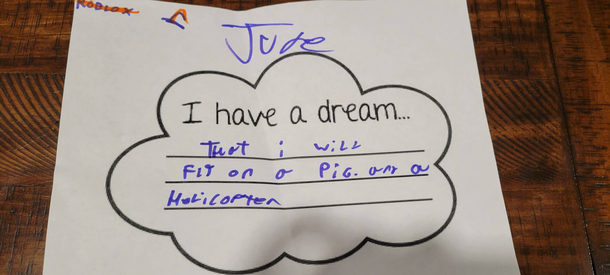 ROBLOX
Jude
I have a dream...
THaT i will
FLY on a Pig. anD a
HeLiCoPTer